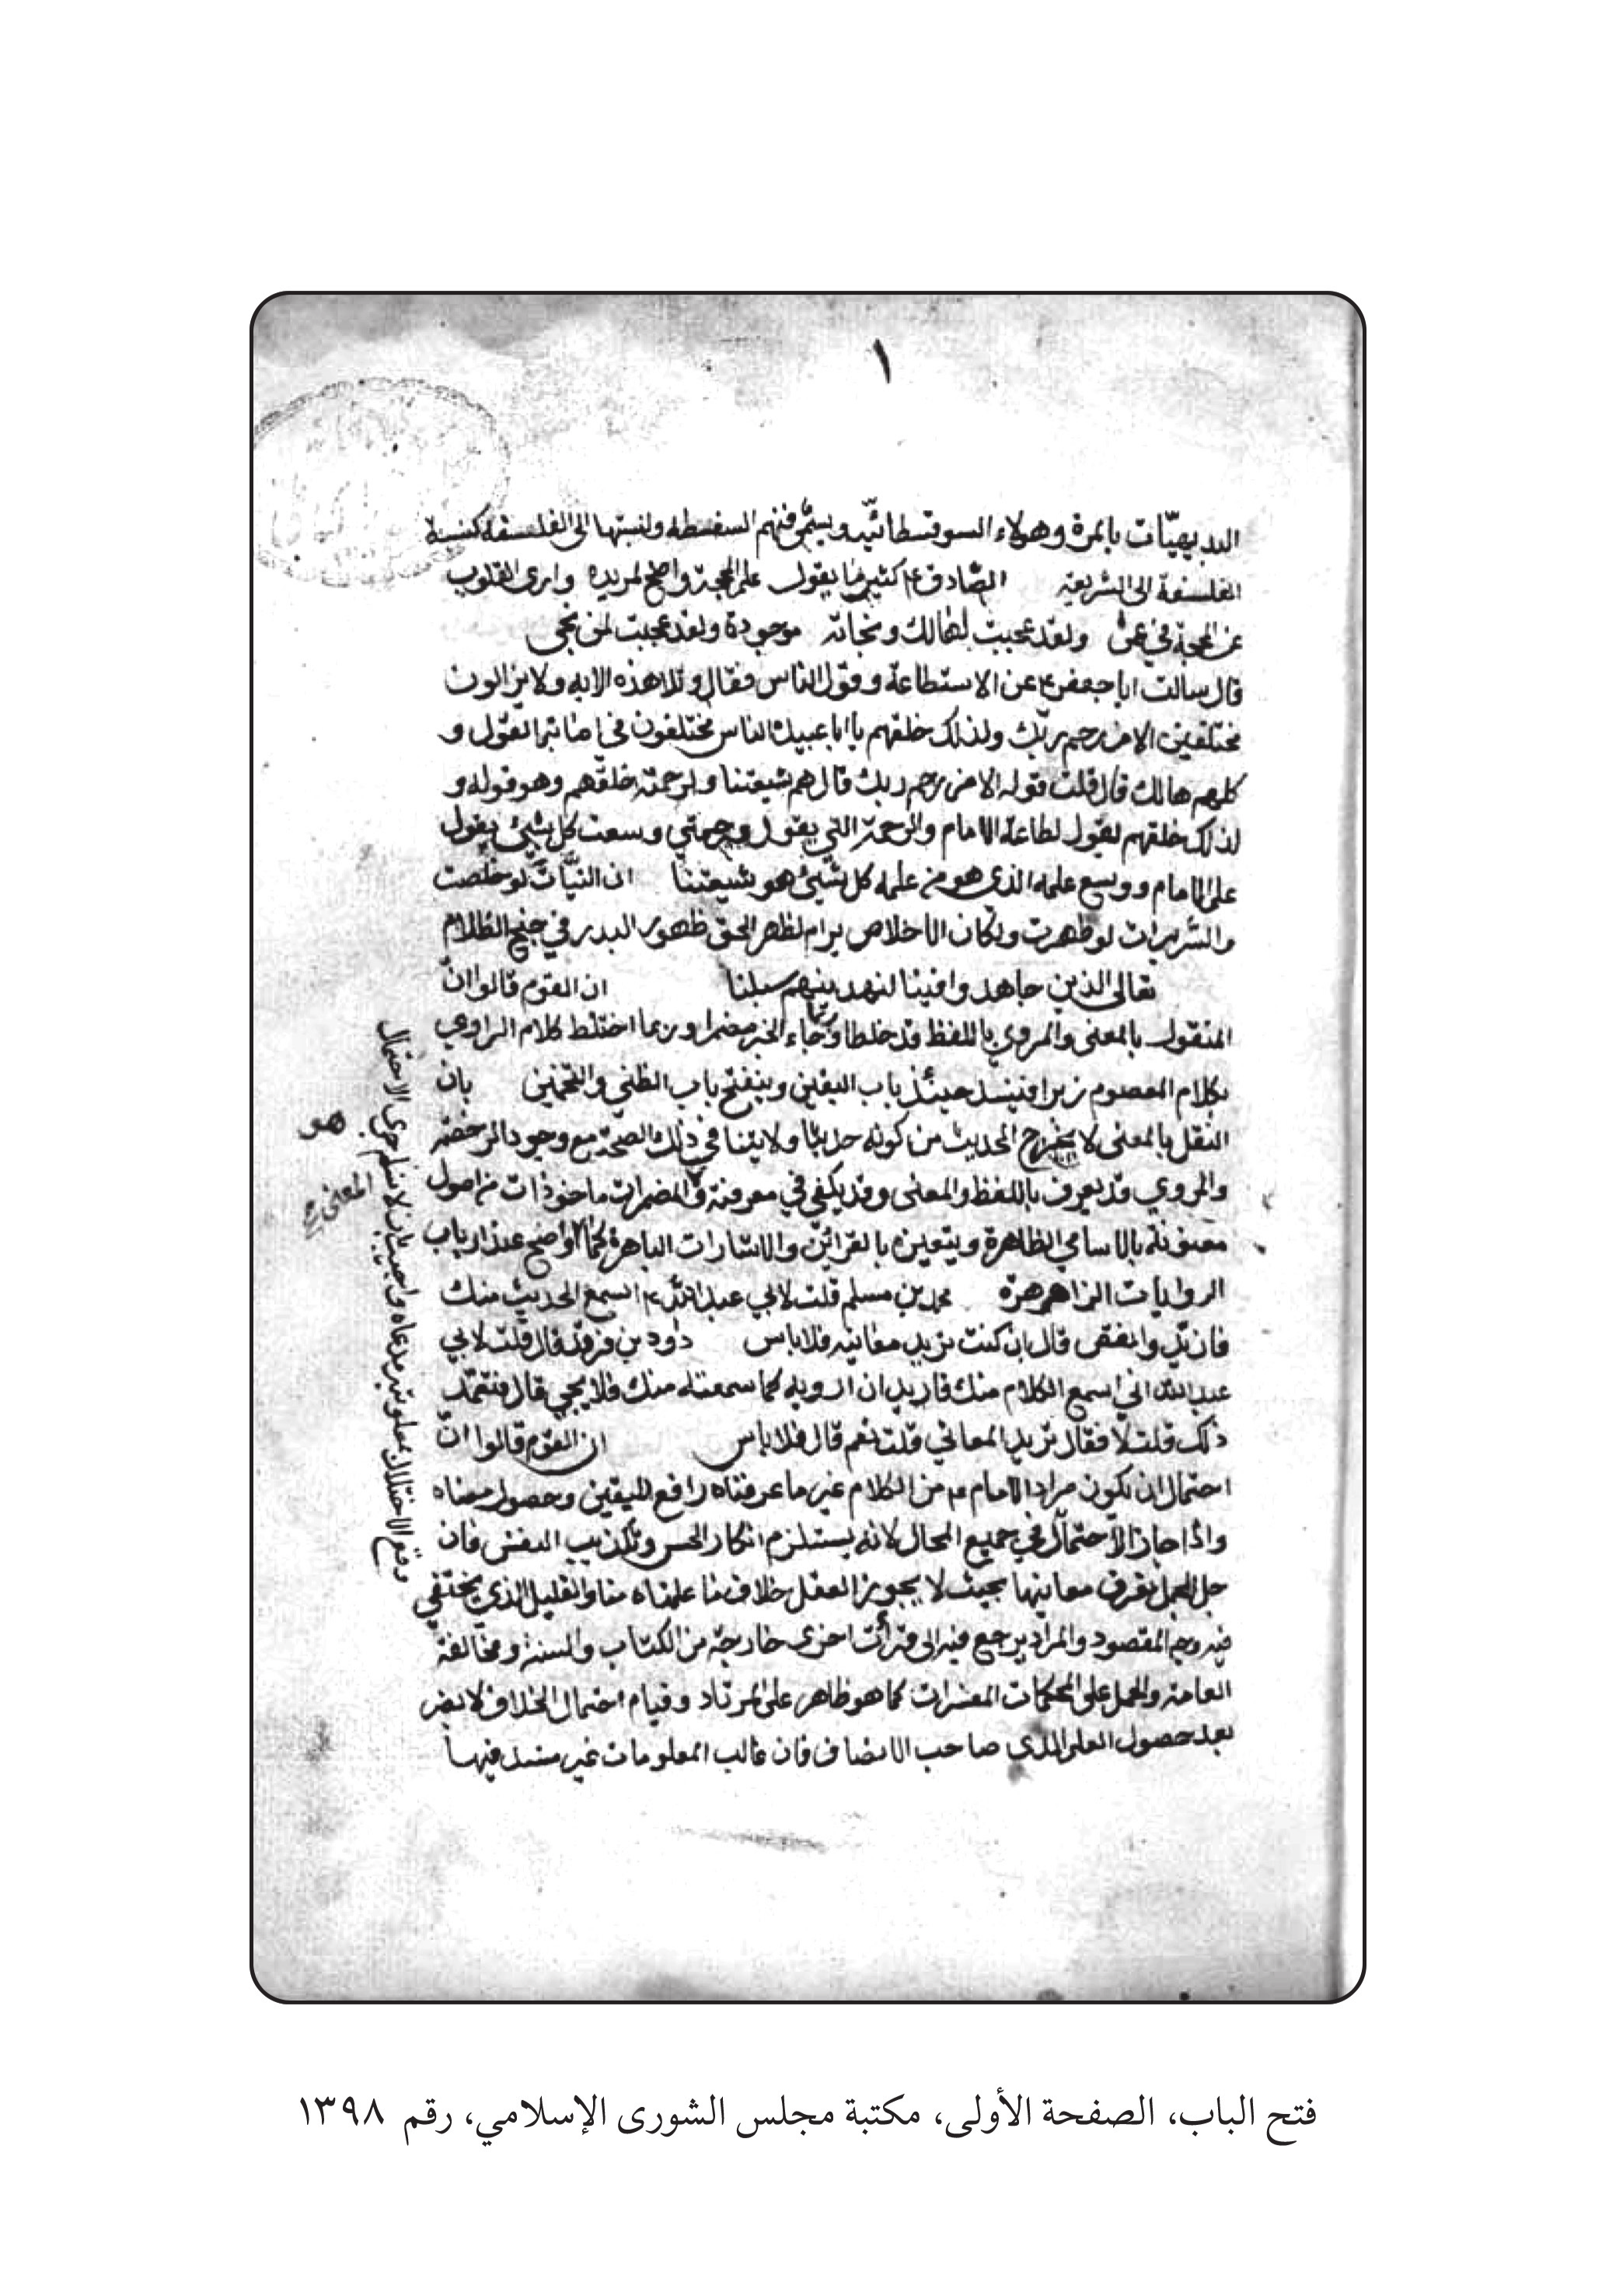 ١
البديهيّات بالمرة وهولاء السوفسطائيّه ويسمّى فنهم السفسطه ونسبتها الى الفلسفه كنسبة
الفلسفة الى الشريعة الصّادق ع كثيرا ما يقول علم المحجة واضح لمريده وارى القلوب
عن المحجة في عمى ولقد عجبت لهالك ونجاته موجودة ولقد عجبت لمن نجى
قال سالت ابا جعفر ع عن الاستطاعة وقول الناس فقال وتلا هذه الايه ولا يزالون
مختلفين الا من رحم ربّك ولذلك خلقهم يا ابا عبيدة الناس مختلفون في اصابة القول و
كلهم هالك قال قلت قوله الا من رحم ربك قال هم شيعتنا ولرحمته خلقهم وهو قوله و
لذلك خلقهم يقول لطاعة الامام والرحمة التي يقول ورحمتي وسعت كل شيئ يقول
علم الامام ووسع علمه الذي هو من علمه كل شيئ هو شيعتنا ان النيّات لو خلصت
والسّريرات لو طهرت وكان الاخلاص يرام لظهر الحق ظهور البدر في جنح الظلام
تعالى الذين جاهدوا فينا لنهدينهم سبلنا ان القوم قالوا انّ
المنقول بالمعنى والمروي باللفظ قد خلطا وربما جاء الخبر مضمرا وربما اختلط كلام الراوي
بكلام المعصوم زبرا فينسد حينئذ باب اليقين وينفتح باب الظني والتخمين بان
النقل بالمعنى لا يخرج الحديث من كونه حديثا ولا يتنافي ذلك الصحة مع وجود الرخصة
والمروي قد يعرف باللفظ والمعنى وقد يكفي في معرفته والمضمرات ماخوذات من اصول
معنونة بالاسامي الظاهرة ويتعين بالقرائن والاشارات الباهرة كما واضح عند ارباب
هو
الروايات الزاهرة محمد بن مسلم قلت لابي عبد الله ع اسمع الحديث منك
فازيد وانقص قال ان كنت تريد معانيه فلا باس داود بن فرقد قال قلت لابي
عبد الله اني اسمع الكلام منك فاريد ان ارويه كما سمعته منك فلا يجي قال فتتعمّد
ذلك قلت لا فقال تريد المعاني قلت نعم قال فلا باس ان القوم قالوا انّ
احتمال ان يكون مراد الامام ع من الكلام غير ما عرفناه رافع لليقين وحصول معناه
واذا جاز الاحتمال في جميع المحال لانه يستلزم انكار الحس وتكذيب النفس فان
جل الجمل يعرف معاينها بحيث لا يجوز العقل خلاف ما علمناه منا والقليل الذي يختفي
فيه وجه المقصود والمراد يرجع فيه الى قرأت اخرى خارجة من الكتاب والسنة ومخالفة
العامة والحمل على المحكمات المفسرات كما هو ظاهر على المرتاد وقيام احتمال الخلاف لا يضر
بعد حصول العلم لذي صاحب الانصاف فان غالب المعلومات غير منسد فيها
فتح الباب، الصفحة الأولى، مكتبة مجلس الشورى الإسلامي، رقم ١٣٩٨